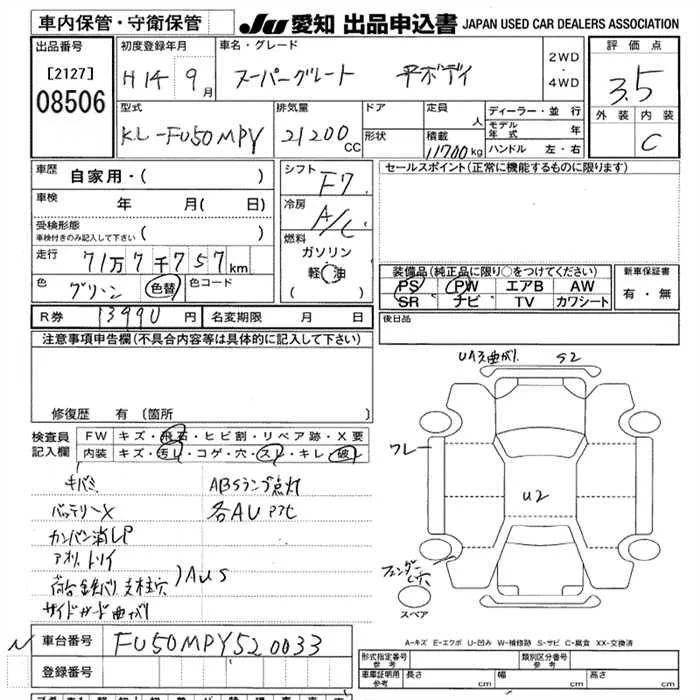 車内保管・守衛保管
JU 愛知 出品申込書 JAPAN USED CAR DEALERS ASSOCIATION
出品番号
[2127]
08506
初度登録年月
H14年 9月
車名・グレード
スーパーグレート 平ボディ
2WD
・
4WD
評価点
3.5
外装 内装
C
型式
KL-FU50MPY
排気量
21200cc
ドア
形状
定員
人
積載
11700kg
ディーラー・並行
モデル年式 年
ハンドル 左・右
車歴
自家用・( )
車検
年 月( 日)
受検形態
車検付きのみ記入して下さい ( )
走行
71万7千757km
色
グリーン
色替
色コード
シフト
F7
冷房
A/C
燃料
ガソリン
軽油
( )
セールスポイント(正常に機能するものに限ります)
装備品(純正品に限り○をつけてください)
PS PW エアB AW
SR ナビ TV カワシート
新車保証書
有・無
R券 13990円 名変期限 月 日
後日品
注意事項申告欄(不具合内容等は具体的に記入して下さい)
修復歴 有〔箇所
検査員
記入欄
FW キズ・飛石・ヒビ割・リペア跡・X要
内装 キズ・汚レ・コゲ・穴・スレ・キレ・破レ
キバミ ABSランプ点灯
バッテリーX 各AU
カンバン消し
アオリ
AUS
サイドガード曲がり
曲がり S2
ワレ
U2
フェンダー
スペア
A-キズ E-エクボ U-凹み W-補修跡 S-サビ C-腐食 XX-交換済
車台番号 FU50MPY520033
登録番号
形式指定番号
参考
類別区分番号
参考
車庫証明用
参考
長さ cm 幅 cm 高さ cm